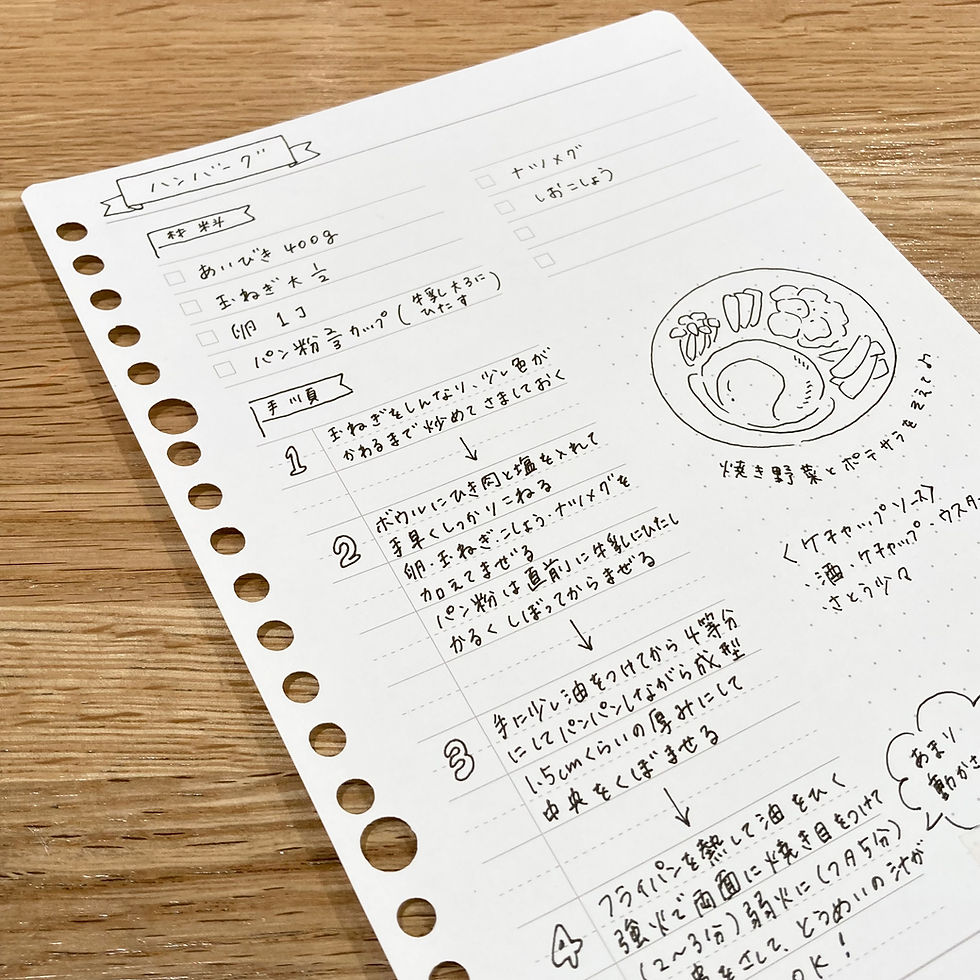 ハンバーグ
材料
あいびき 400g
玉ねぎ 大 1/2
卵 1コ
パン粉 2/3 カップ (牛乳 大3に
ひたす)
ナツメグ
しおこしょう
手順
1
玉ねぎをしんなり、少し色が
かわるまで炒めてさましておく
↓
2
ボウルにひき肉と塩を入れて
手早くしっかりこねる
卵・玉ねぎ・こしょう・ナツメグを
加えてまぜる
パン粉は直前に牛乳にひたし
かるくしぼってからまぜる
↓
3
手に少し油をつけてから4等分
にしてパンパンしながら成型
1.5cmくらいの厚みにして
中央をくぼませる
↓
4
フライパンを熱して油をひく
強火で両面に焼き目をつけて
(2〜3分)弱火に(フタ5分)
をさして、とうめいの汁が
OK!
焼き野菜とポテサラをそえて♪
<ケチャップソース>
・酒・ケチャップ・ウスター
・さとう少々
あまり
動かさ